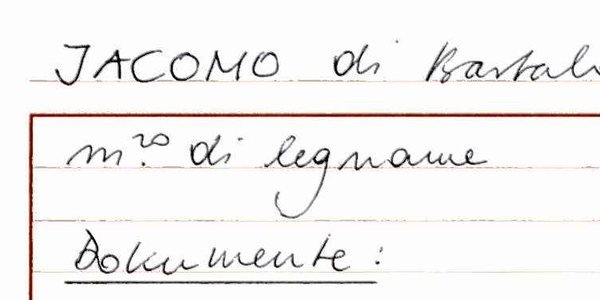 JACOMO di
m.ʳᵒ di legname
Dokumente: